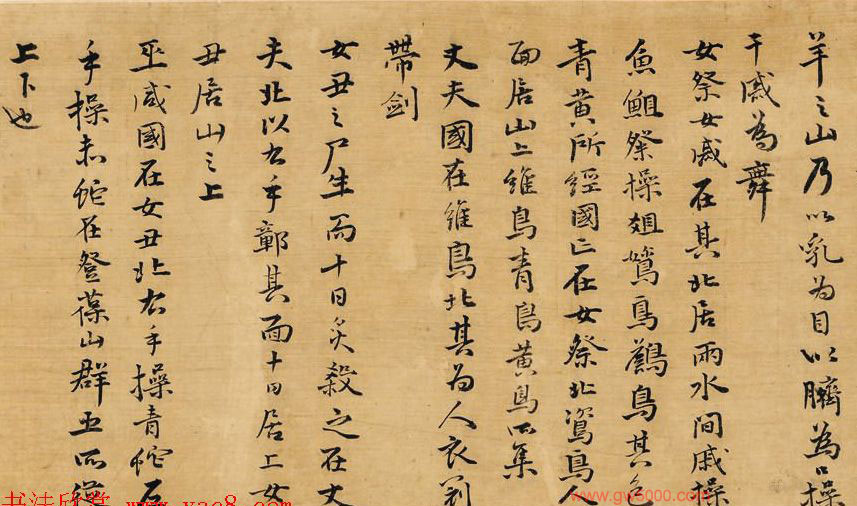 羊之山乃以乳為目以臍為口操
干戚為舞
女祭女戚在其北居兩水間戚操
魚䱉祭操俎鴜鳥鶬鳥其色
青黃所經國亡在女祭北鴜鳥人
面居山上維鳥青鳥黃鳥所集
丈夫國在維鳥北其為人衣冠
帶劍
女丑之尸生而十日炙殺之在丈
夫北以右手鄣其面十日居上女
丑居山之上
巫咸國在女丑北右手操青蛇左
手操赤蛇在登葆山群巫所從
上下也
www.gw5000.com